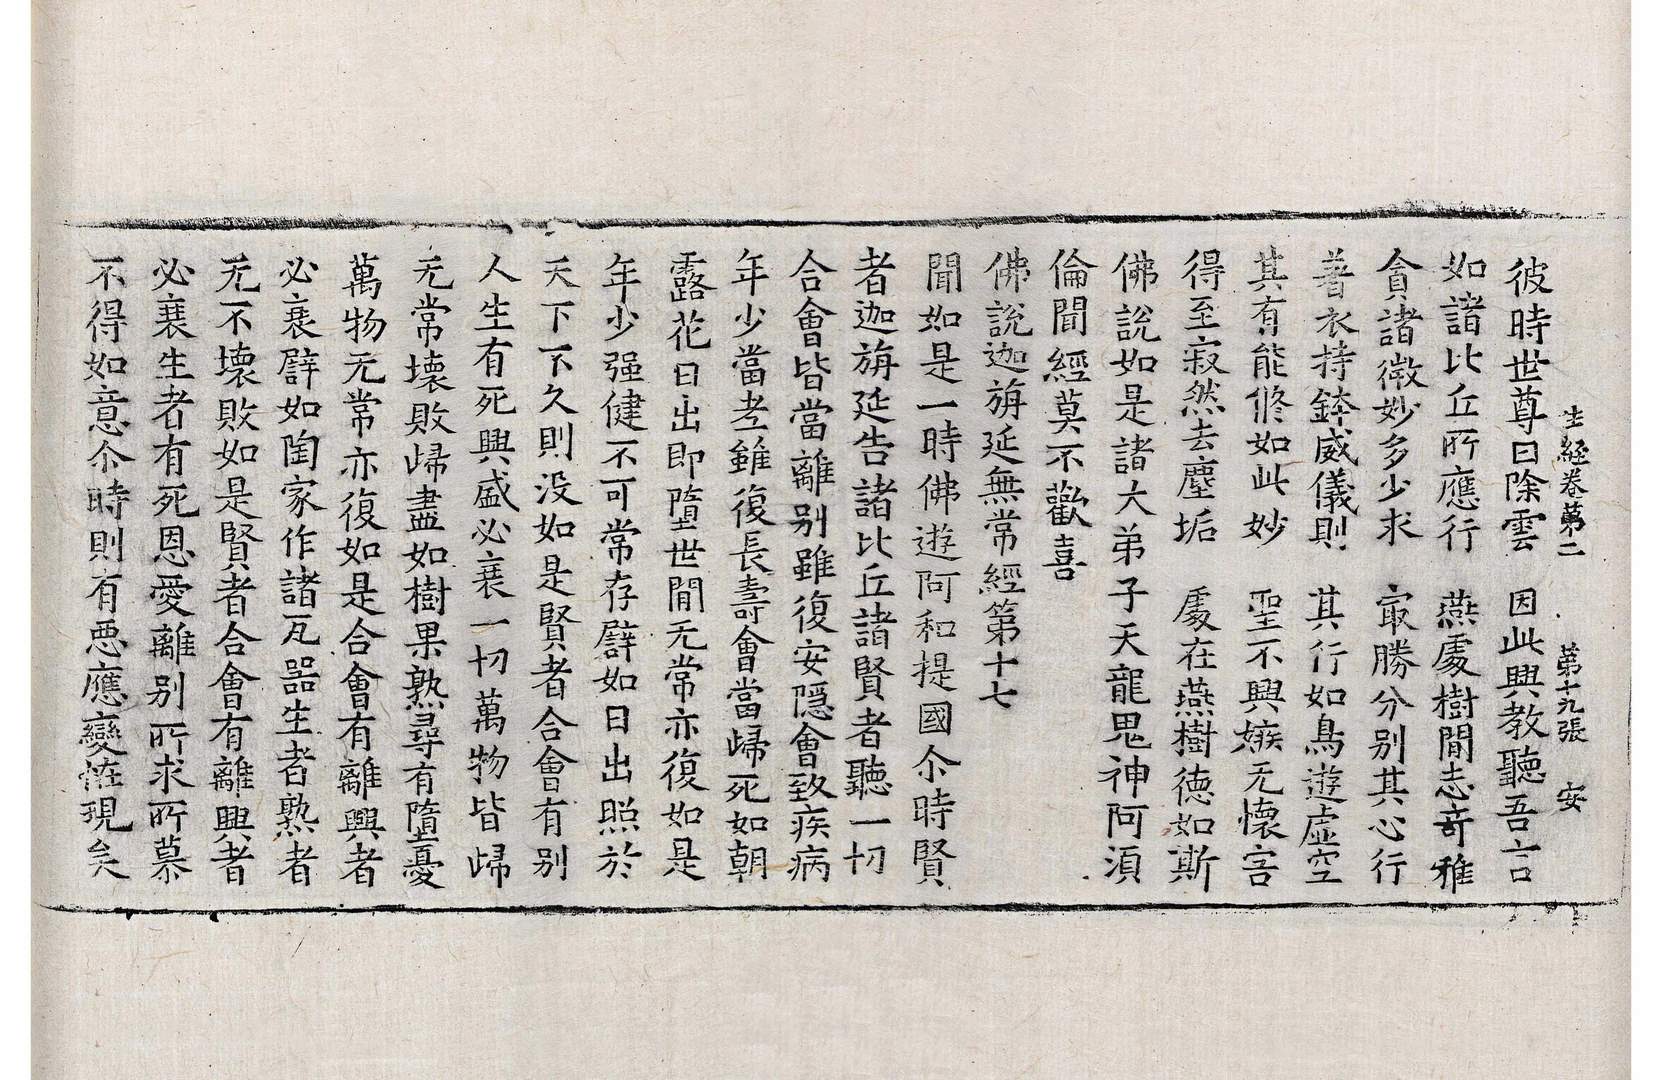 生經卷第二　第十九張　安
彼時世尊曰除雲　因此興教聽吾言
如諸比丘所應行　燕處樹間志奇雅
貪諸微妙多少求　㝡勝分别其心行
著衣持鉢威儀則　其行如鳥遊虛空
其有能脩如此妙　聖不興嫉无懷害
得至寂然去塵垢　處在燕樹德如斯
佛說如是諸大弟子天龍鬼神阿須
倫聞經莫不歡喜
佛說迦旃延無常經第十七
聞如是一時佛遊阿和提國尒時賢
者迦旃延告諸比丘諸賢者聽一切
合會皆當離别雖復安隱會致疾病
年少當老雖復長壽會當歸死如朝
露花日出即墮世間无常亦復如是
年少强健不可常存譬如日出照於
天下不久則没如是賢者合會有别
人生有死興盛必衰一切萬物皆歸
无常壞敗歸盡如樹果熟尋有墮憂
萬物无常亦復如是合會有離興者
必衰譬如陶家作諸瓦器生者熟者
无不壞敗如是賢者合會有離興者
必衰生者有死恩愛離别所求所慕
不得如意尒時則有惡應變恠現矣